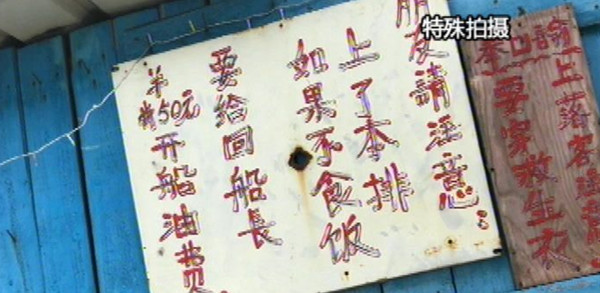 特殊拍摄
朋友請注意：
上了本排
如果不食飯
要給回船長
50元开船油费
上落客注意
要穿救生衣